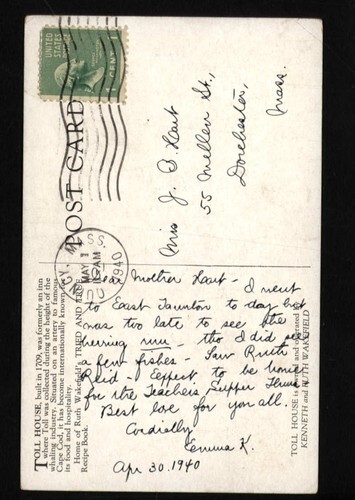 UNITED
STATES
POSTAGE
1 CENT 1
POST CARD
QUINCY, MASS.
MAY 1
AM
1940
Miss J. B. Hart
55 Mellen St.,
Dorchester,
Mass.
Dear Mother Hart - I went
to East Taunton to day but
was too late to see the
herring run - tho I did see
a few fishes - Saw Ruth
Reid - Expect to be home
for the Teachers Supper Thurs
Best love for you all.
Cordially
Emma K.
Apr 30. 1940
TOLL HOUSE, built in 1709, was formerly an inn
where Toll was collected during the height of the
whaling industry. Situated on an artery to famous
Cape Cod, it has become internationally known for
its food and hospitality.
Home of Ruth Wakefield's TRIED AND TRUE
Recipe Book.
TOLL HOUSE is owned and operated by
KENNETH and RUTH WAKEFIELD